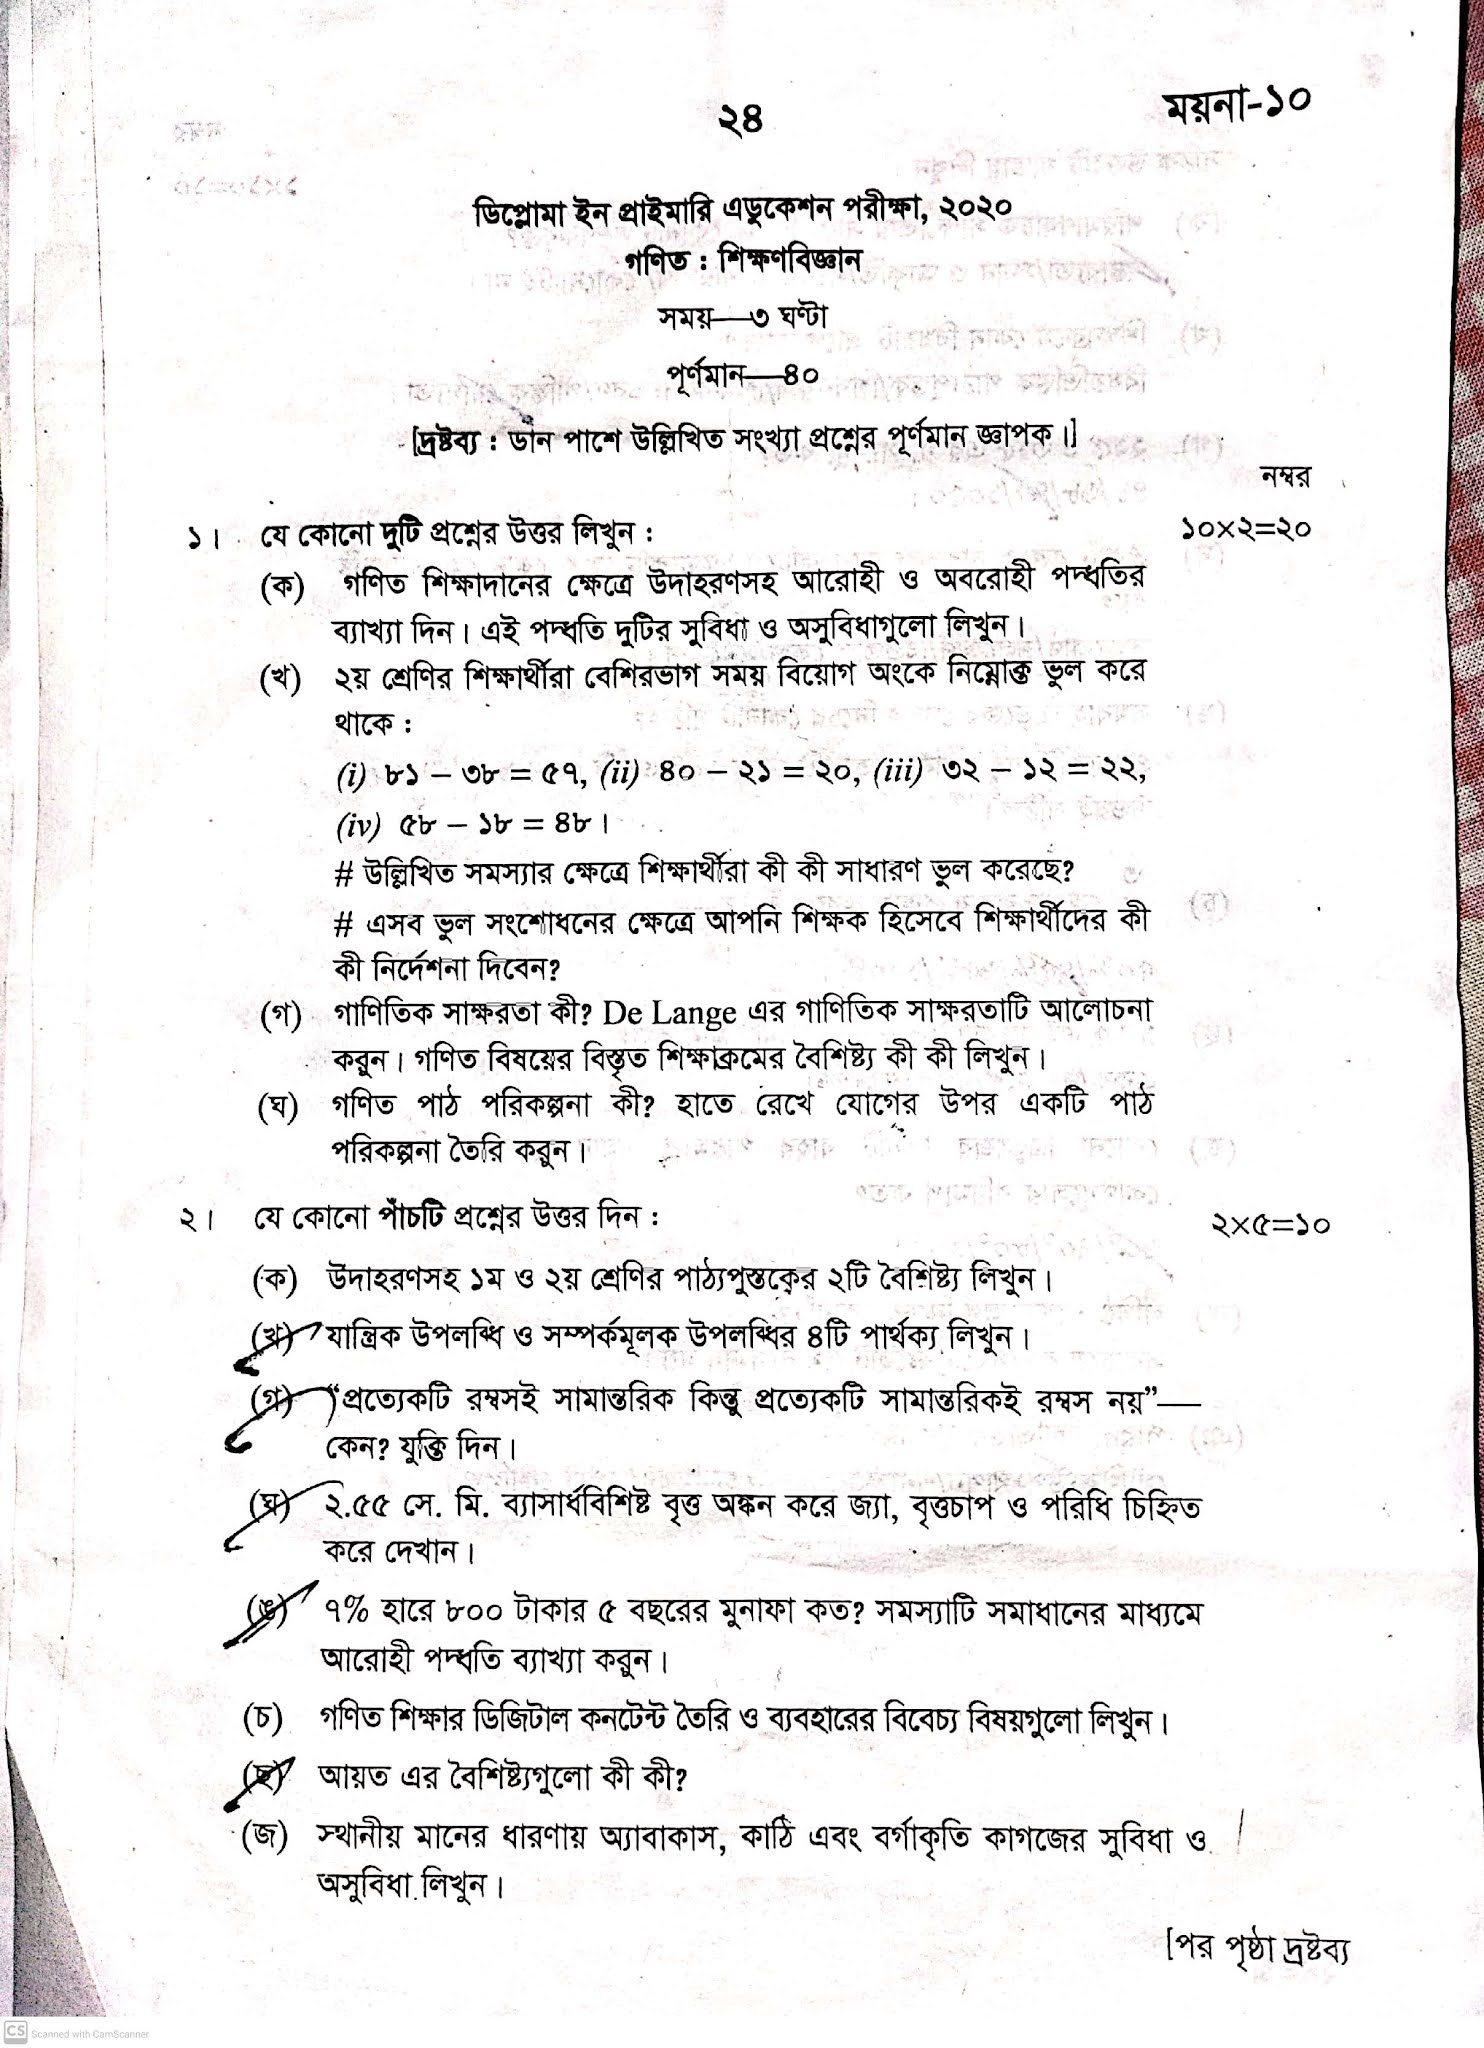 ময়না-১০
২৪
ডিপ্লোমা ইন প্রাইমারি এডুকেশন পরীক্ষা, ২০২০
গণিত : শিক্ষণবিজ্ঞান
সময়—৩ ঘণ্টা
পূর্ণমান—৪০
[দ্রষ্টব্য : ডান পাশে উল্লিখিত সংখ্যা প্রশ্নের পূর্ণমান জ্ঞাপক।]
নম্বর
১। যে কোনো দুটি প্রশ্নের উত্তর লিখুন : ১০×২=২০
(ক) গণিত শিক্ষাদানের ক্ষেত্রে উদাহরণসহ আরোহী ও অবরোহী পদ্ধতির
ব্যাখ্যা দিন। এই পদ্ধতি দুটির সুবিধা ও অসুবিধাগুলো লিখুন।
(খ) ২য় শ্রেণির শিক্ষার্থীরা বেশিরভাগ সময় বিয়োগ অংকে নিম্নোক্ত ভুল করে
থাকে :
(i) ৮১ – ৩৮ = ৫৭, (ii) ৪০ – ২১ = ২০, (iii) ৩২ – ১২ = ২২,
(iv) ৫৮ – ১৮ = ৪৮।
# উল্লিখিত সমস্যার ক্ষেত্রে শিক্ষার্থীরা কী কী সাধারণ ভুল করেছে?
# এসব ভুল সংশোধনের ক্ষেত্রে আপনি শিক্ষক হিসেবে শিক্ষার্থীদের কী
কী নির্দেশনা দিবেন?
(গ) গাণিতিক সাক্ষরতা কী? De Lange এর গাণিতিক সাক্ষরতাটি আলোচনা
করুন। গণিত বিষয়ের বিস্তৃত শিক্ষাক্রমের বৈশিষ্ট্য কী কী লিখুন।
(ঘ) গণিত পাঠ পরিকল্পনা কী? হাতে রেখে যোগের উপর একটি পাঠ
পরিকল্পনা তৈরি করুন।
২। যে কোনো পাঁচটি প্রশ্নের উত্তর দিন : ২×৫=১০
(ক) উদাহরণসহ ১ম ও ২য় শ্রেণির পাঠ্যপুস্তকের ২টি বৈশিষ্ট্য লিখুন।
(খ) যান্ত্রিক উপলব্ধি ও সম্পর্কমূলক উপলব্ধির ৪টি পার্থক্য লিখুন।
(গ) “প্রত্যেকটি রম্বসই সামান্তরিক কিন্তু প্রত্যেকটি সামান্তরিকই রম্বস নয়”—
কেন? যুক্তি দিন।
(ঘ) ২.৫৫ সে. মি. ব্যাসার্ধবিশিষ্ট বৃত্ত অঙ্কন করে জ্যা, বৃত্তচাপ ও পরিধি চিহ্নিত
করে দেখান।
(ঙ) ৭% হারে ৮০০ টাকার ৫ বছরের মুনাফা কত? সমস্যাটি সমাধানের মাধ্যমে
আরোহী পদ্ধতি ব্যাখ্যা করুন।
(চ) গণিত শিক্ষার ডিজিটাল কনটেন্ট তৈরি ও ব্যবহারের বিবেচ্য বিষয়গুলো লিখুন।
(ছ) আয়ত এর বৈশিষ্ট্যগুলো কী কী?
(জ) স্থানীয় মানের ধারণায় অ্যাবাকাস, কাঠি এবং বর্গাকৃতি কাগজের সুবিধা ও
অসুবিধা লিখুন।
[পর পৃষ্ঠা দ্রষ্টব্য
CS Scanned with CamScanner